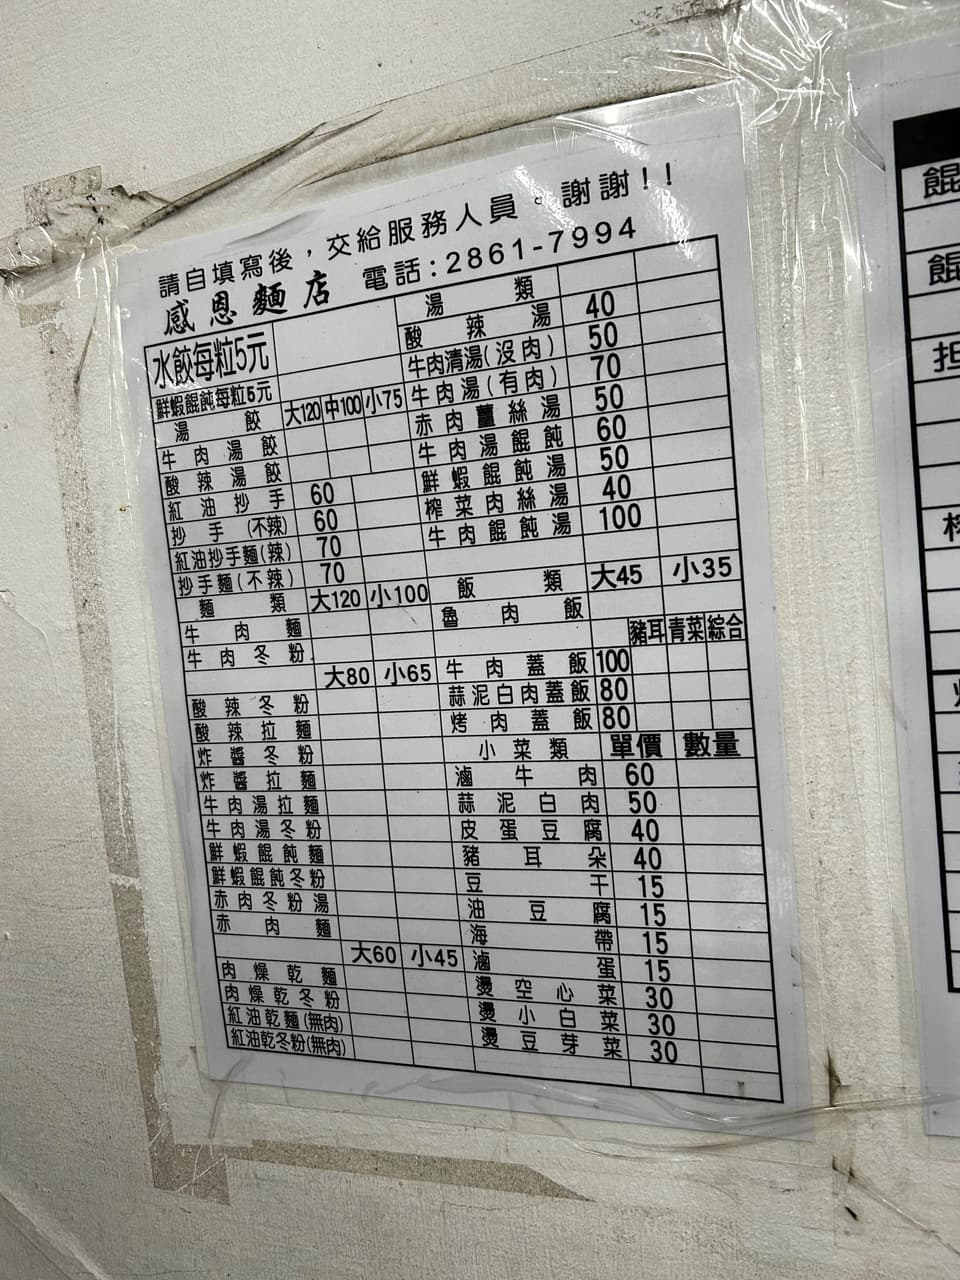 請自填寫後，交給服務人員。謝謝！！
感恩麵店 電話：2861-7994
水餃每粒5元
鮮蝦餛飩每粒5元
湯餃 大120 中100 小75
牛肉湯餃
酸辣湯餃
紅油抄手 60
抄手(不辣) 60
紅油抄手麵(辣) 70
抄手麵(不辣) 70
麵類 大120 小100
牛肉麵
牛肉冬粉
大80 小65
酸辣冬粉
酸辣拉麵
炸醬冬粉
炸醬拉麵
牛肉湯拉麵
牛肉湯冬粉
鮮蝦餛飩麵
鮮蝦餛飩冬粉
赤肉冬粉湯
赤肉麵
大60 小45
肉燥乾麵
肉燥乾冬粉
紅油乾麵(無肉)
紅油乾冬粉(無肉)
湯類
酸辣湯 40
牛肉清湯(沒肉) 50
牛肉湯(有肉) 70
赤肉薑絲湯 50
牛肉湯餛飩 60
鮮蝦餛飩湯 50
榨菜肉絲湯 40
牛肉餛飩湯 100
飯類 大45 小35
魯肉飯
豬耳 青菜 綜合
牛肉蓋飯 100
蒜泥白肉蓋飯 80
烤肉蓋飯 80
小菜類 單價 數量
滷牛肉 60
蒜泥白肉 50
皮蛋豆腐 40
豬耳朵 40
豆干 15
油豆腐 15
海帶 15
滷蛋 15
燙空心菜 30
燙小白菜 30
燙豆芽菜 30
餛
餛
担